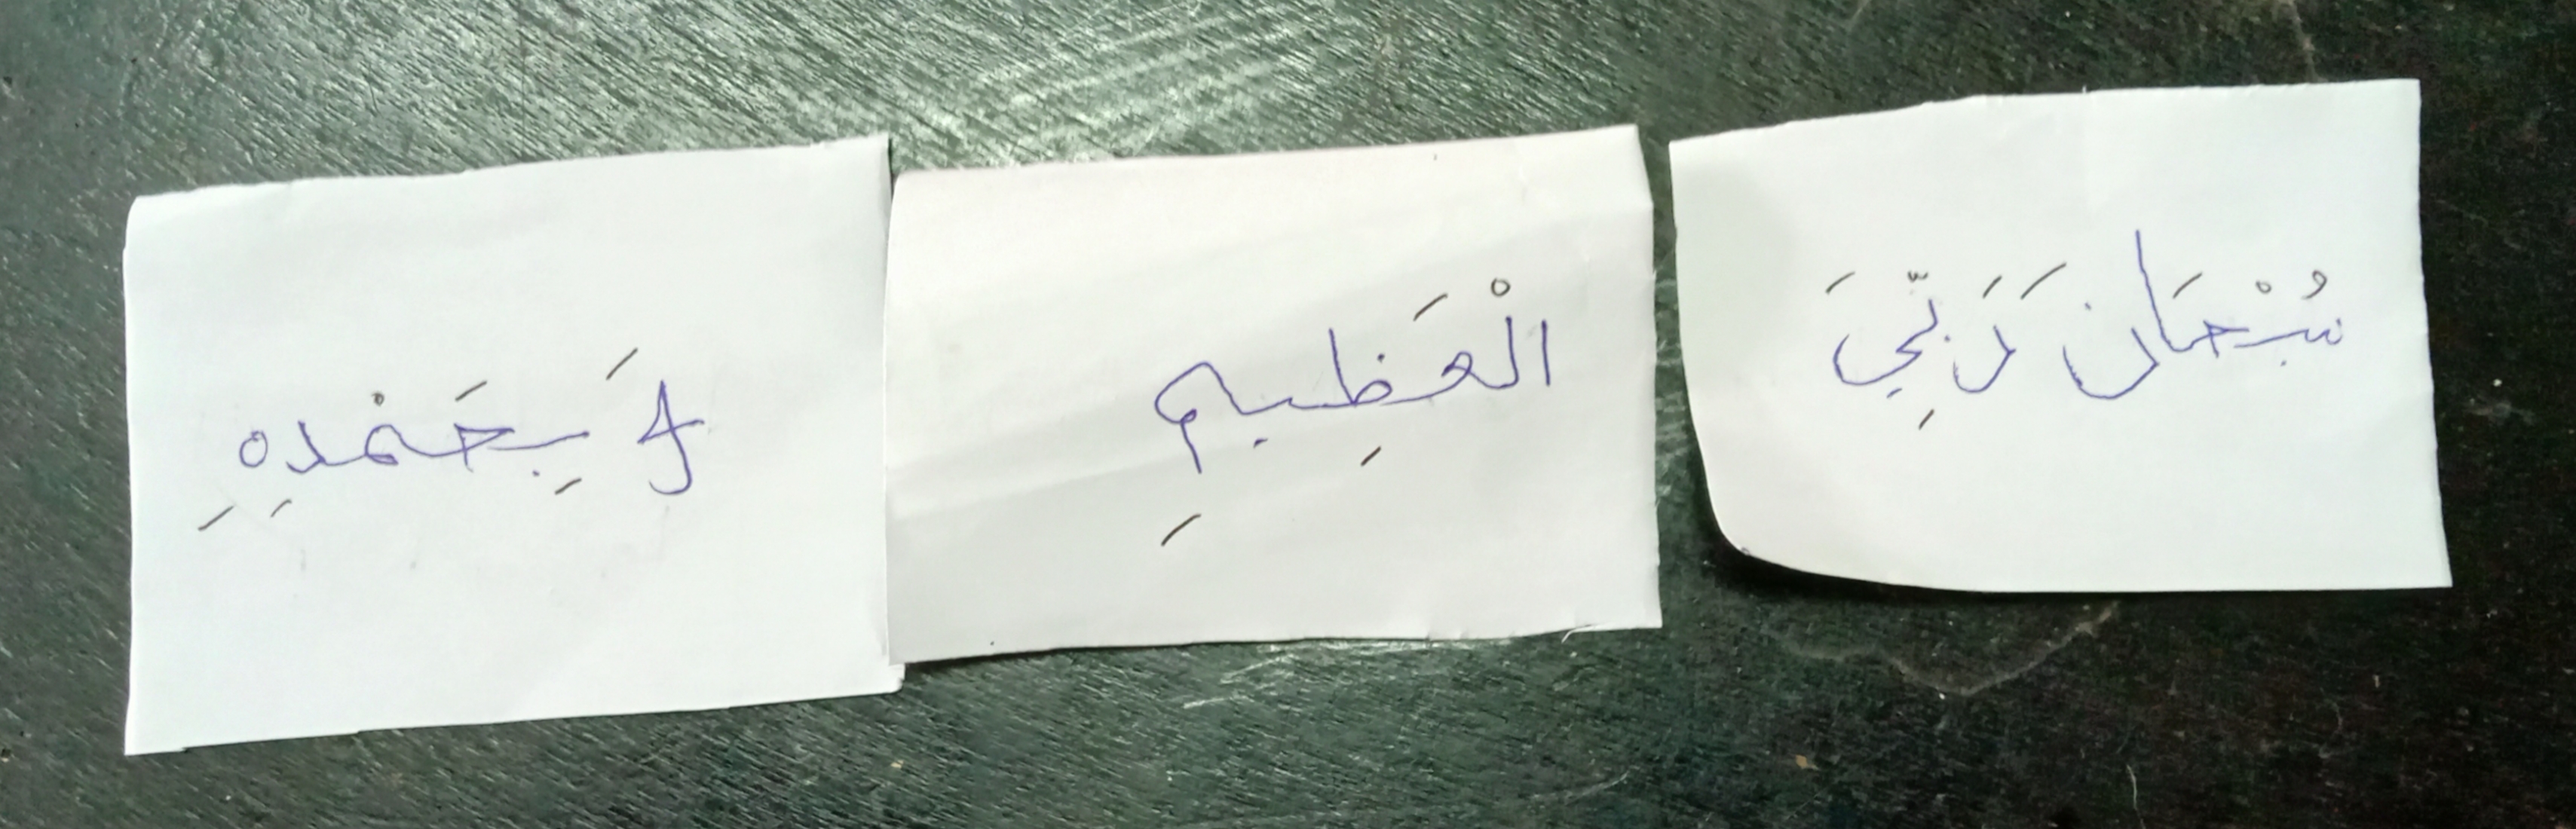 سُبْحَانَ رَبِّيَ الْعَظِيمِ وَ بِحَمْدِهِ